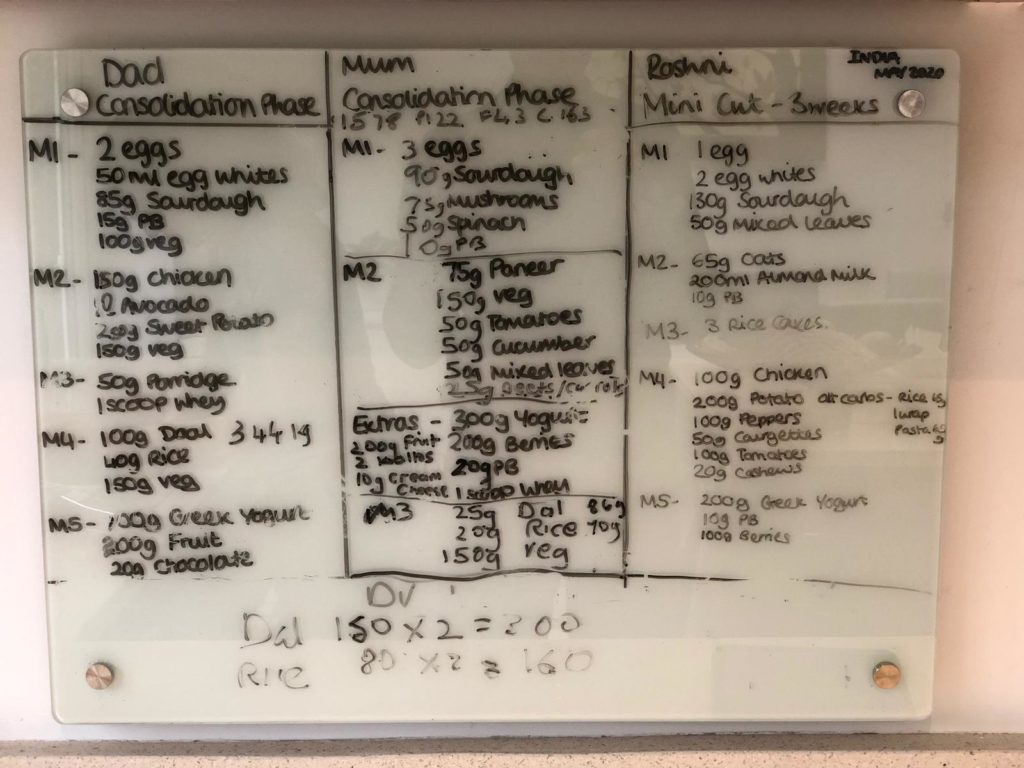 Dad
Consolidation Phase
M1 - 2 eggs
50ml egg whites
85g Sourdough
15g PB
100g veg
M2 - 150g Chicken
Avocado
200g Sweet Potato
150g veg
M3 - 50g Porridge
1 scoop whey
M4 - 100g Daal 344 1g
40g Rice
150g veg
M5 - 100g Greek Yogurt
200g Fruit
20g Chocolate
Mum
Consolidation Phase
1578 P:122 F43 C 163
M1 - 3 eggs
90g Sourdough
75g Mushrooms
50g Spinach
10g PB
M2 75g Paneer
150g veg
50g Tomatoes
50g Cucumber
50g Mixed leaves
25g Beets/
Extras - 300g Yogurt
200g Fruit 200g Berries
2 20g PB
10g Cream
Cheese 1 scoop whey
M3 25g Dal 86g
20g Rice 70g
150g veg
Roshni
Mini Cut - 3 weeks
INDIA
MAY 2020
M1 1 egg
2 egg whites
130g Sourdough
50g Mixed leaves
M2 - 65g Oats
200ml Almond Milk
10g PB
M3 - 3 Rice Cakes.
M4 - 100g Chicken
200g Potato or carbs - Rice
100g Peppers 1 wrap
50g Courgettes Pasta
100g Tomatoes
20g Cashews
M5 - 200g Greek Yogurt
10g PB
100g Berries
Dal 150 x 2 = 300
Rice 80 x 2 = 160